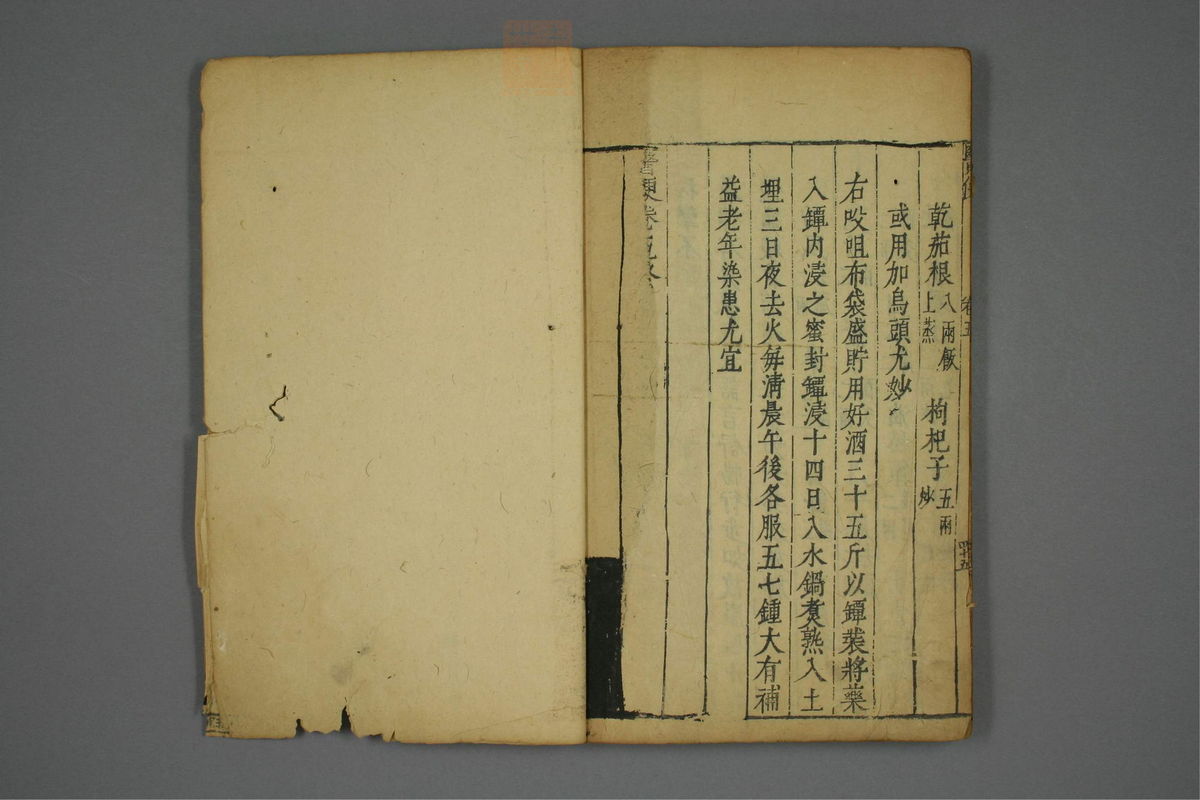 卷五
四十五
乾茄根八兩飯上蒸 枸杞子五兩炒
或用加烏頭尤妙
右㕮咀布袋盛貯用好酒三十五斤以罈裝將藥
入罈内浸之蜜封罈浸十四日入水鍋煮熟入土
埋三日夜去火每清晨午後各服五七鍾大有補
益老年染患尤宜